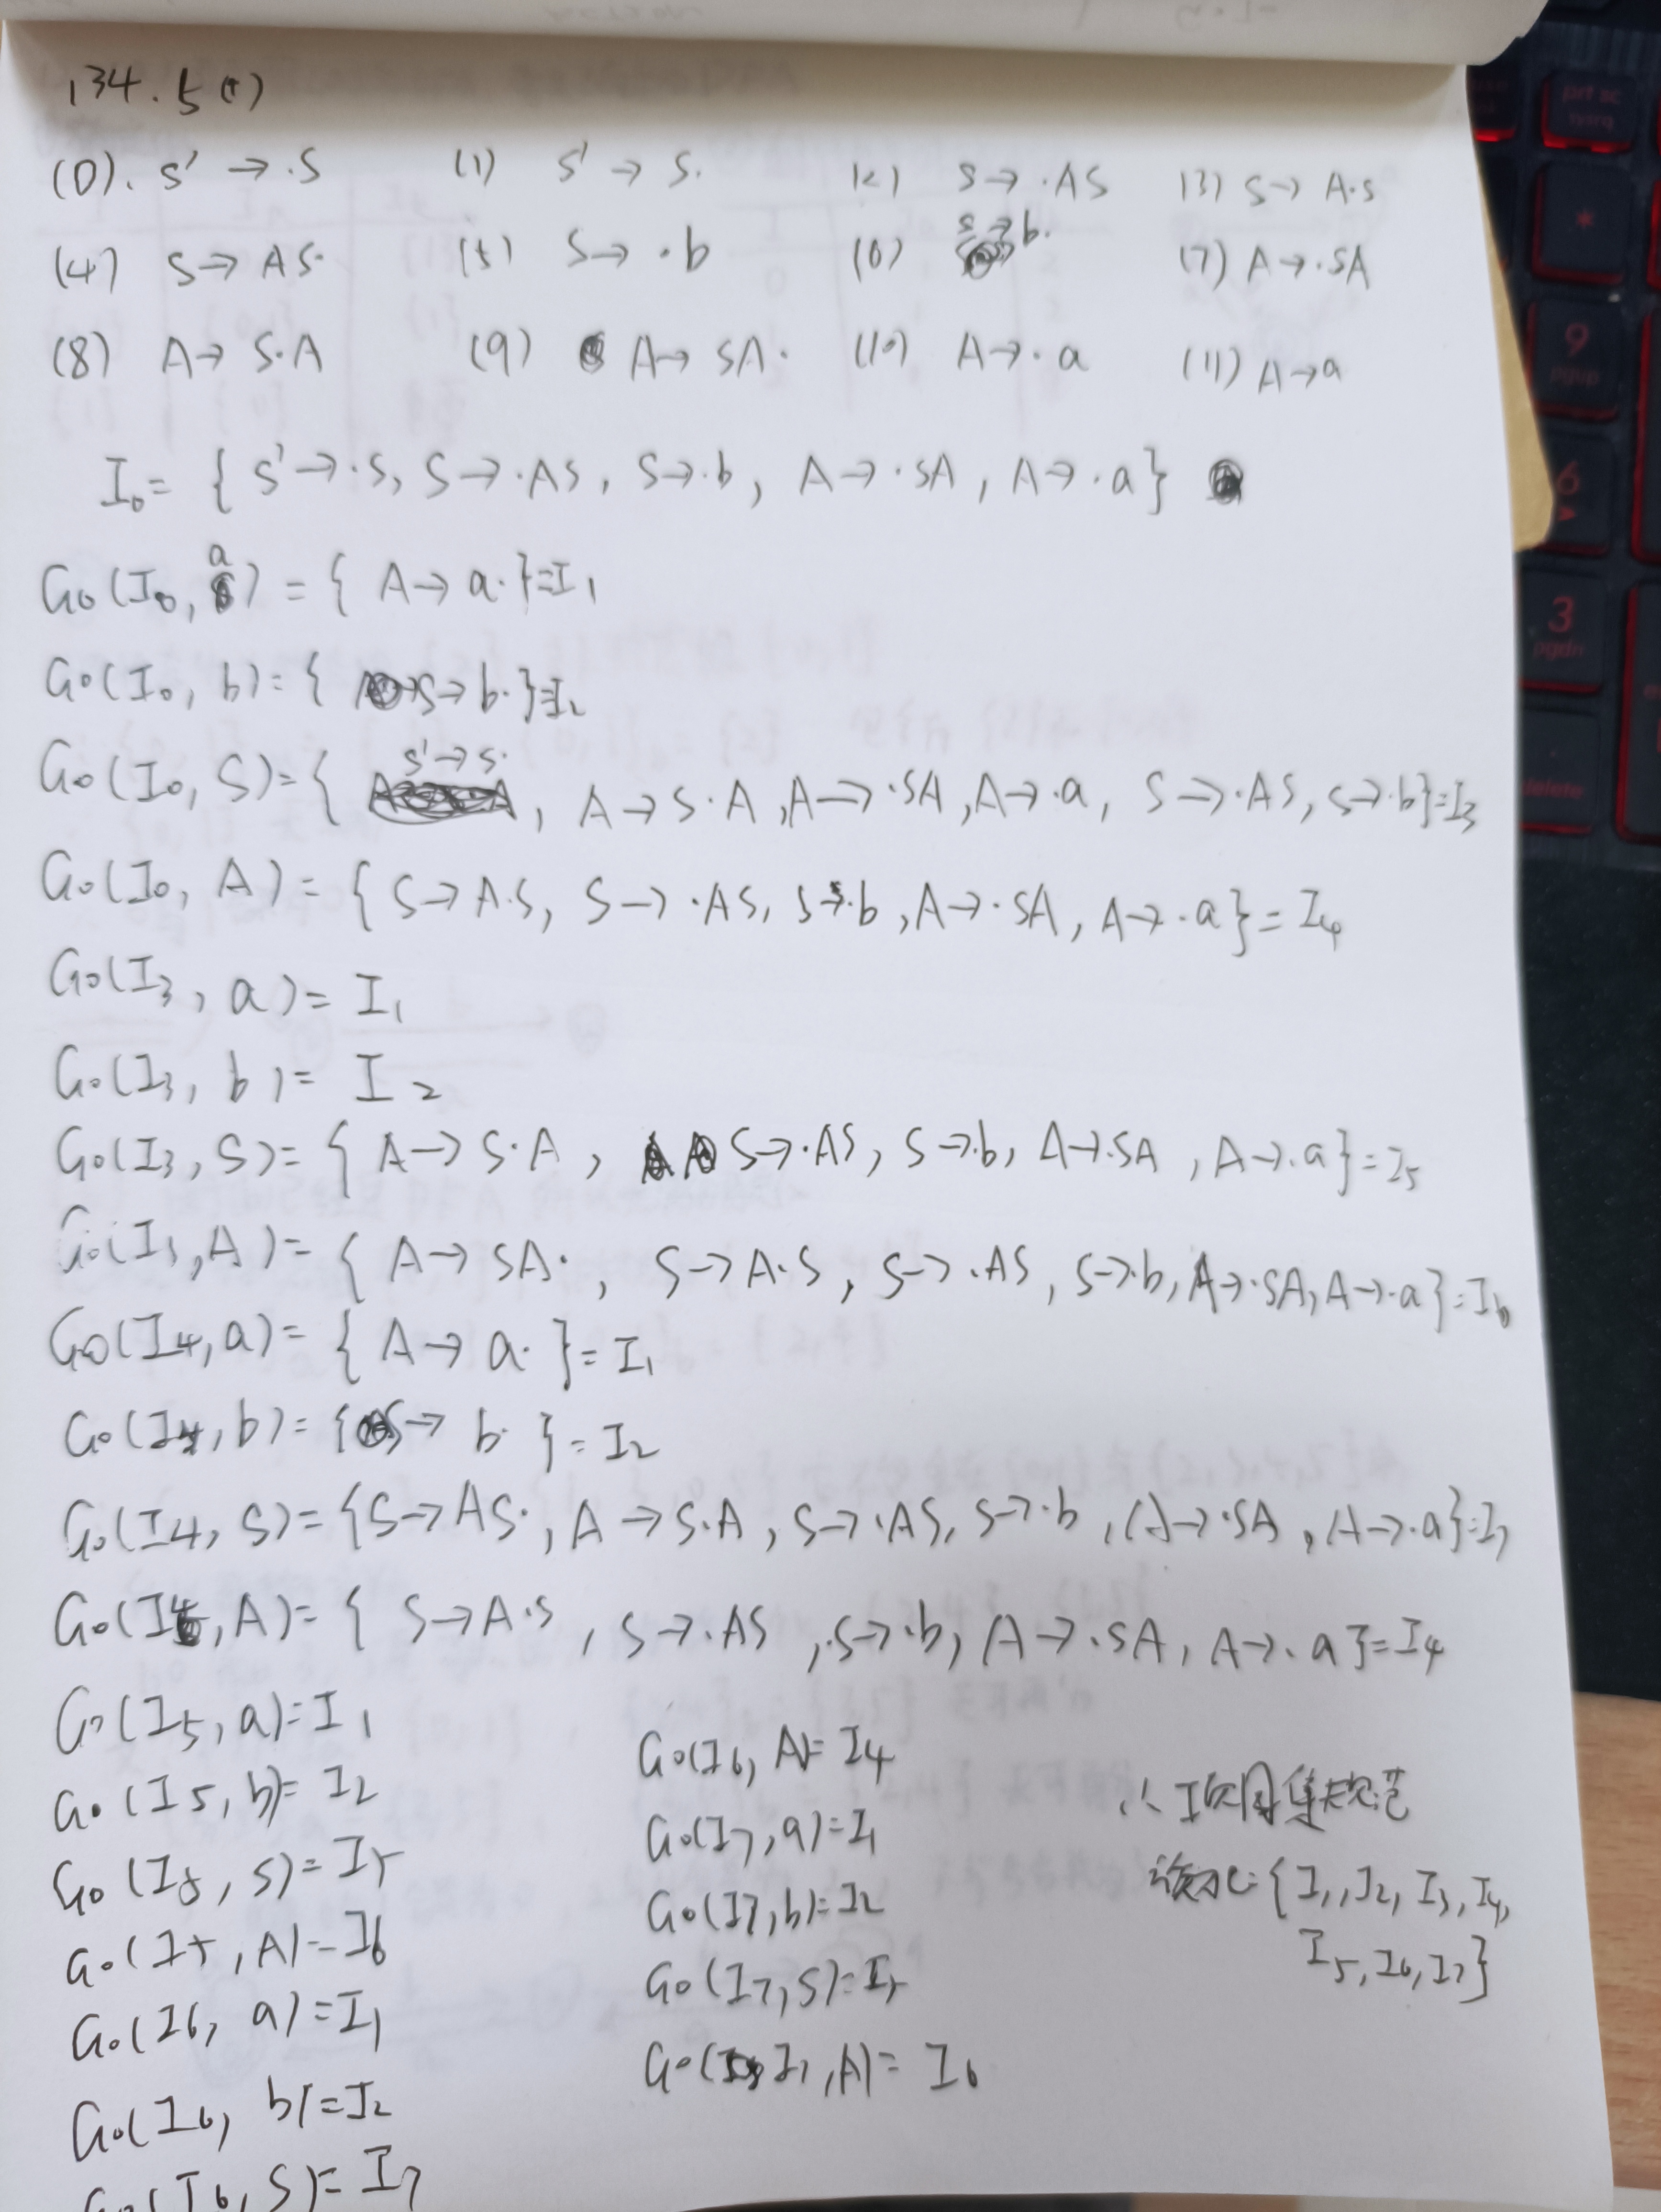 134. 5(1)
(0). S' → ·S (1) S' → S. (2) S → ·AS (3) S → A·S
(4) S → AS· (5) S → ·b (6) S → b. (7) A → ·SA
(8) A → S·A (9) A → SA· (10) A → ·a (11) A → a
I₀ = { S' → ·S, S → ·AS, S → ·b, A → ·SA, A → ·a }
Go(I₀, a) = { A → a· } = I₁
Go(I₀, b) = { S → b· } = I₂
Go(I₀, S) = { S' → S·, A → S·A, A → ·SA, A → ·a, S → ·AS, S → ·b } = I₃
Go(I₀, A) = { S → A·S, S → ·AS, S → ·b, A → ·SA, A → ·a } = I₄
Go(I₃, a) = I₁
Go(I₃, b) = I₂
Go(I₃, S) = { A → S·A, S → ·AS, S → ·b, A → ·SA, A → ·a } = I₅
Go(I₃, A) = { A → SA·, S → A·S, S → ·AS, S → ·b, A → ·SA, A → ·a } = I₆
Go(I₄, a) = { A → a· } = I₁
Go(I₄, b) = { S → b· } = I₂
Go(I₄, S) = { S → AS·, A → S·A, S → ·AS, S → ·b, A → ·SA, A → ·a } = I₇
Go(I₄, A) = { S → A·S, S → ·AS, S → ·b, A → ·SA, A → ·a } = I₄
Go(I₅, a) = I₁
Go(I₅, b) = I₂
Go(I₅, S) = I₅
Go(I₅, A) = I₆
Go(I₆, a) = I₁
Go(I₆, b) = I₂
Go(I₆, S) = I₇
Go(I₆, A) = I₄
Go(I₇, a) = I₁
Go(I₇, b) = I₂
Go(I₇, S) = I₅
Go(I₇, A) = I₆
∴ 项目集规范
{ I₁, I₂, I₃, I₄,
I₅, I₆, I₇ }